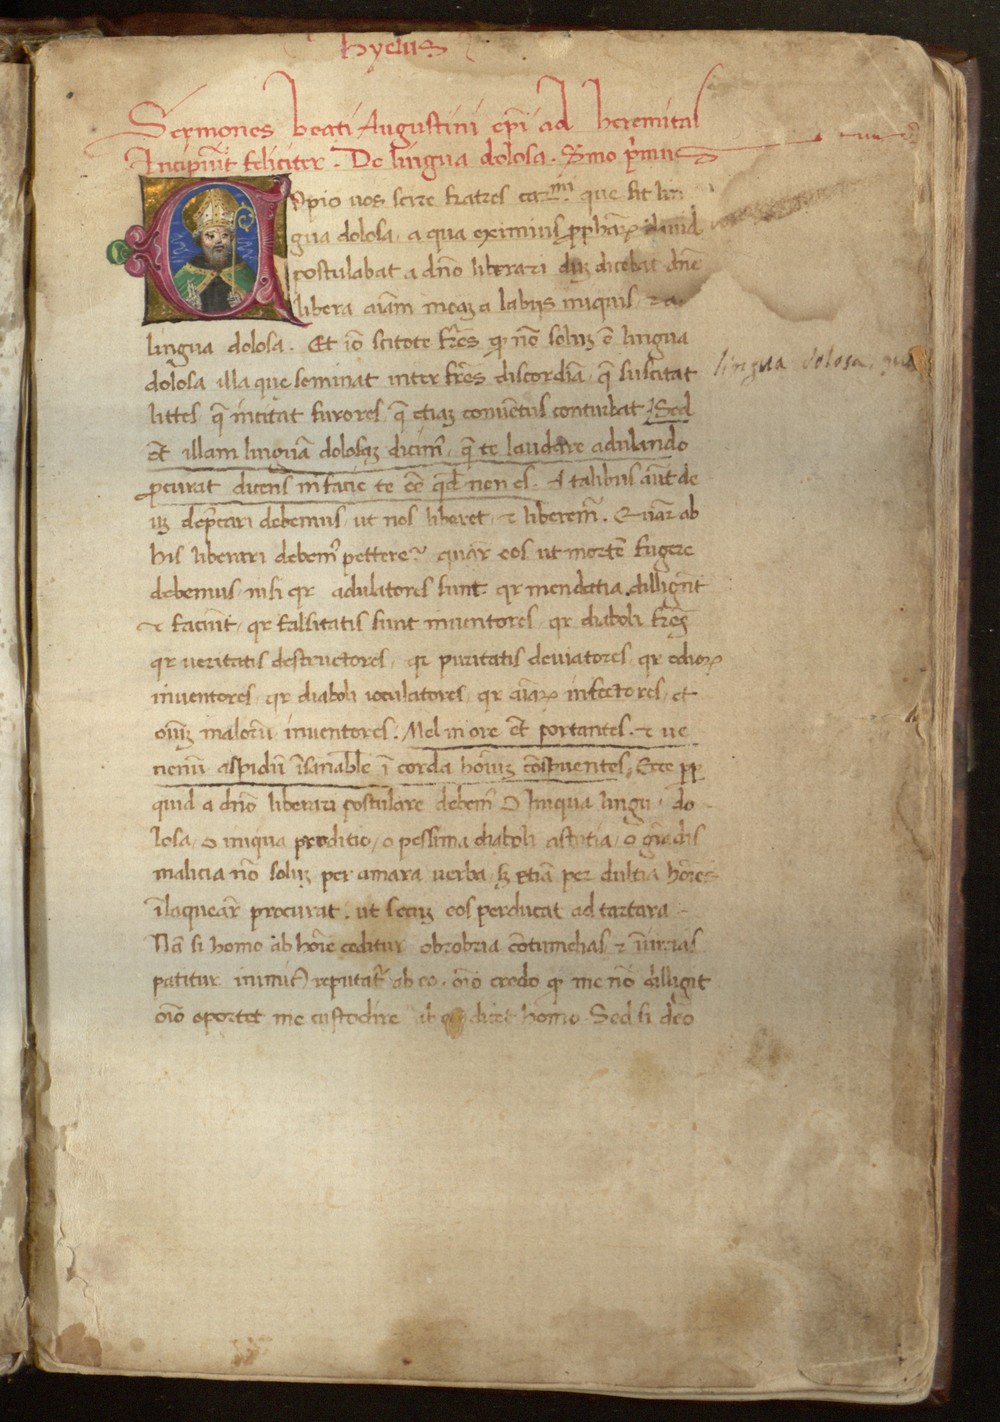 Sermones beati Augustini epi ad heremitas
Incipiut feliciter. De lingua dolosa. Smo primus
Cupio uos scire fratres carmi que sit lin
gua dolosa, a qua eximius ppharum dauid
postulabat a dno liberari dum dicebat dne
libera aiam meam a labijs iniquis et a
lingua dolosa. Et io scitote fres qd no solum e lingua
dolosa illa que seminat inter fres discordia, que suscitat
littes que incitat furores que etiam conuetus conturbat. Sed
et illam lingua dolosam dicim, que te laudare adulando
procurat dicens in facie te ee qd non es. A talibus aut de
um deprecari debemus, ut nos liberet, et liberem. Quar ab
his liberari debem pettere? quar eos ut morte fugere
debemus, nisi qr adulatores sunt. qr mendatia dilligut
et faciut, qr falsitatis sunt inuentores, qr diaboli fres
qr ueritatis destructores, qr puritatis deuiatores, qr odiorum
inuentores, qr diaboli ioculatores, qr aiarum infectores, et
oium malorum inuentores. Mel in ore et portantes. et ue
nenu aspidu isanable i corda hoium conspuentes, Ecce pp
quid a dno liberari postulare debem O iniqua lingu do
losa, o iniqua proditio, o pessima diaboli astutia, o gradis
malicia no solum per amara uerba, sed etia per dultia hoies
ilaquear procurat. ut secum eos perducat ad tartara
Na si homo ab hoie ceditur obrobria cotumelias et iniurias
patitur inimic reputat ab eo. oio credo qd me no dilligit
oio oportet me custodire dicet homo. Sed si deo
lingua dolosa,